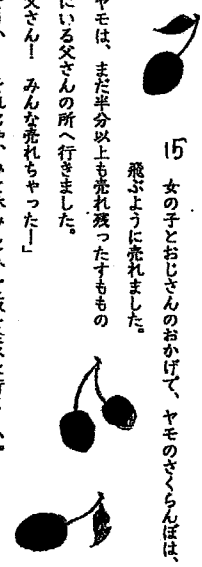 15 女の子とおじさんのおかげで、ヤモのさくらんぼは、
飛ぶように売れました。
ヤモは、まだ半分以上も売れ残ったすももの
にいる父さんの所へ行きました。
父さん! みんな売れちゃったー」